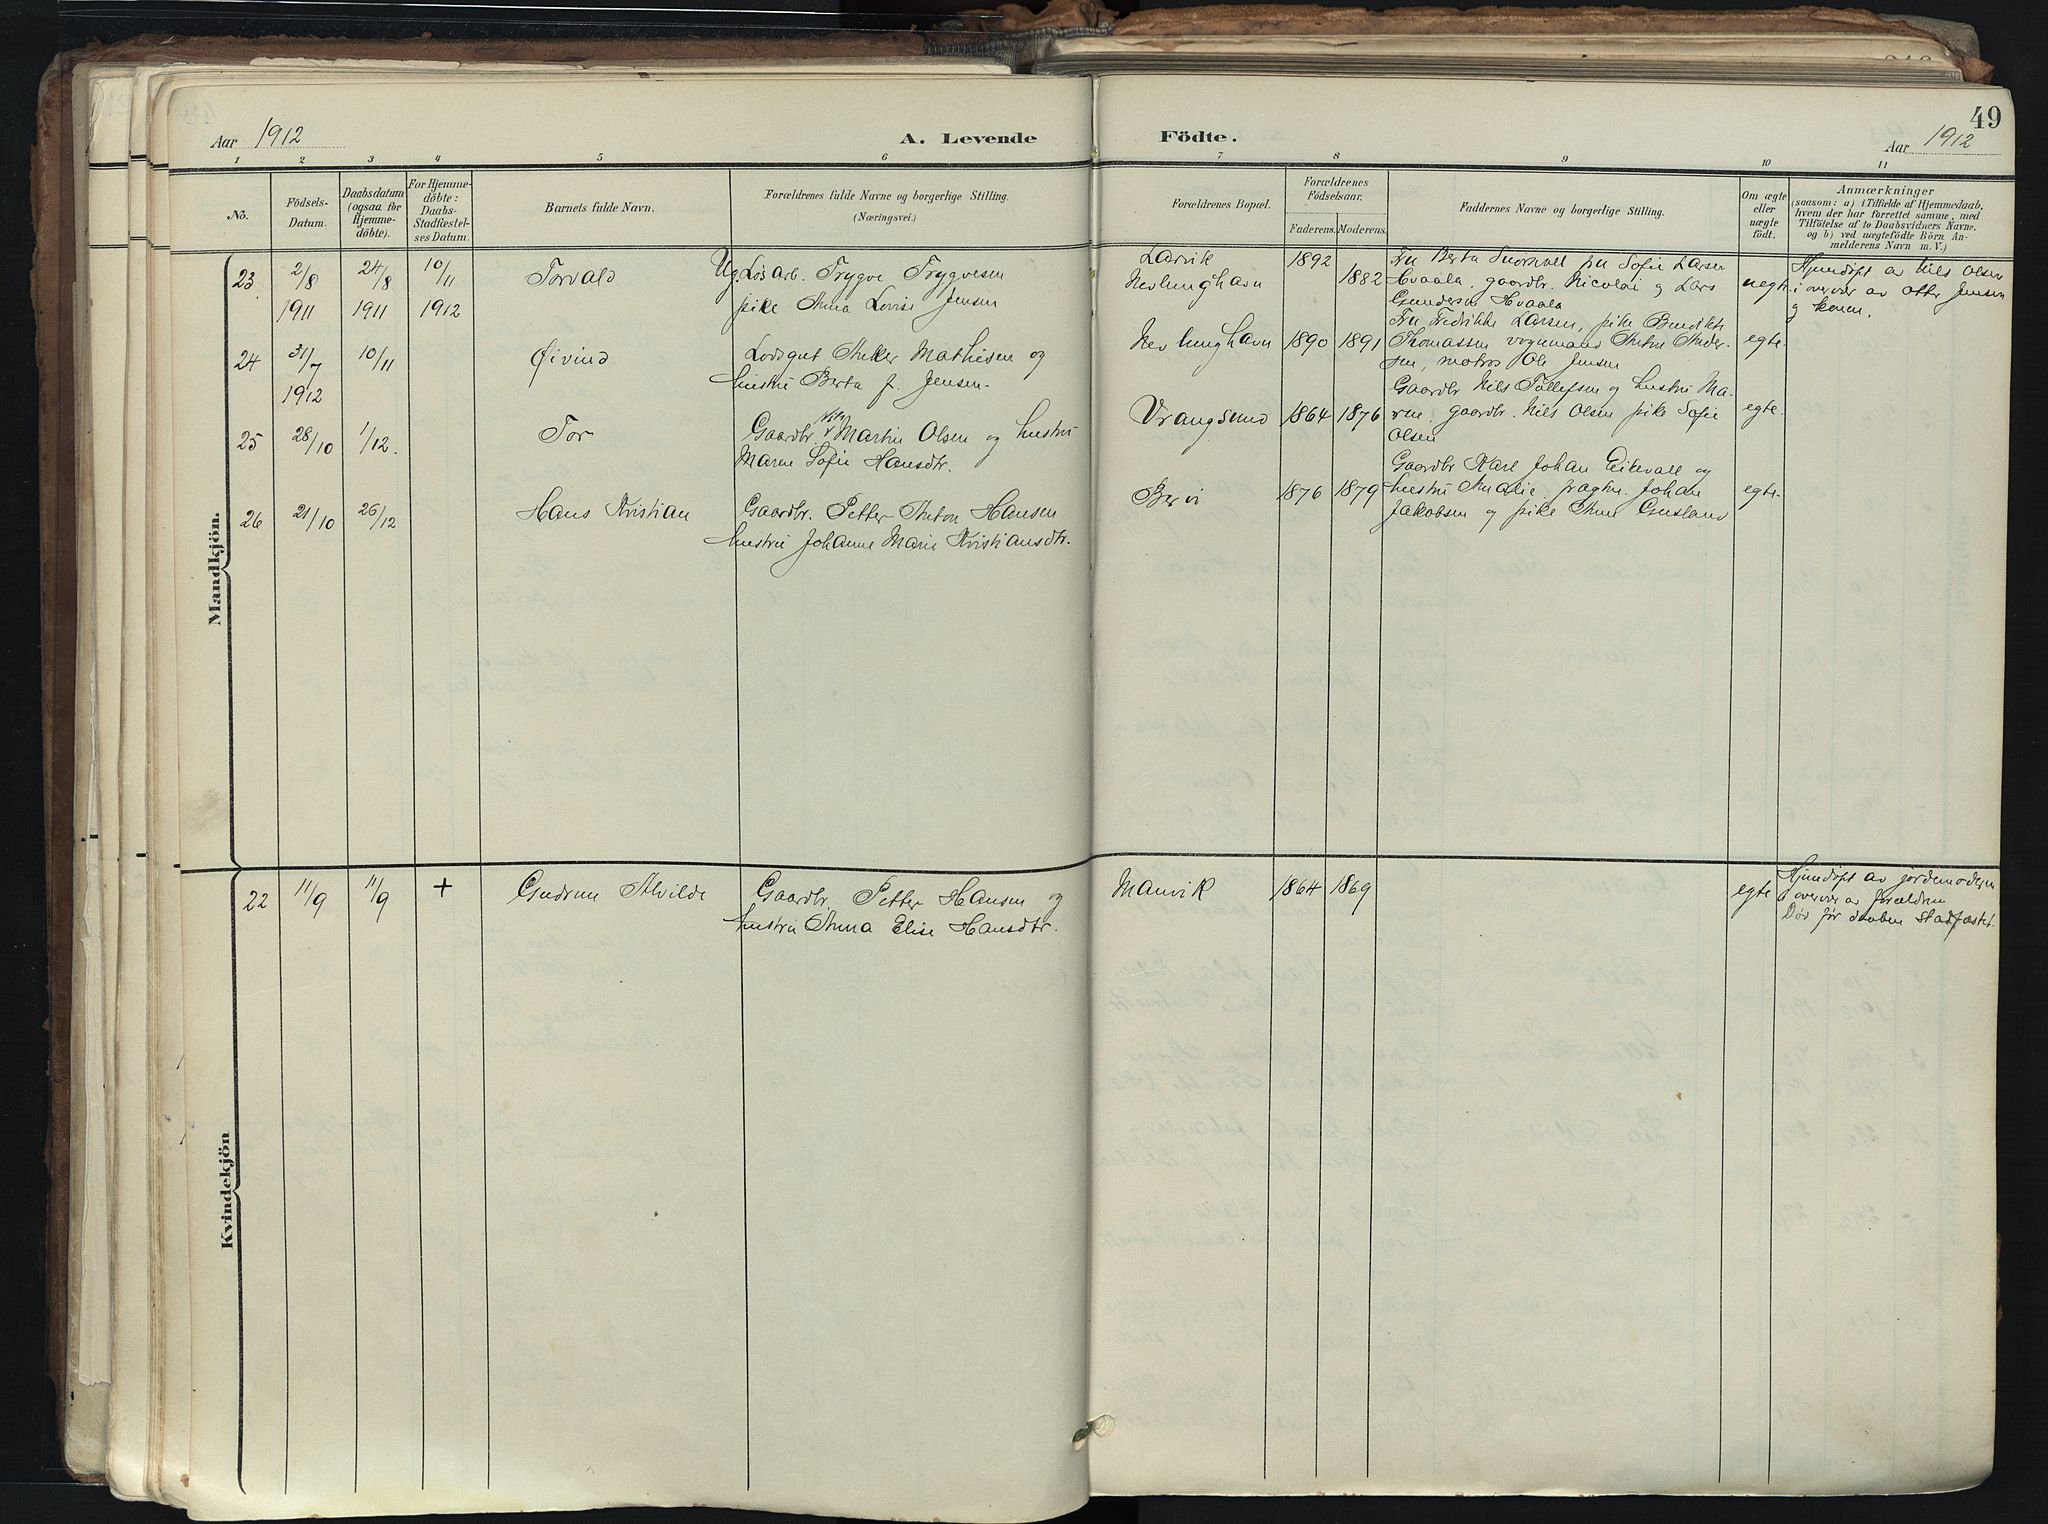 49
Aar 1912
A. Levende Födte.
Aar 1912
1 2 3 4 5 6 7 8 9 10 11
No.
Födsels-
Datum.
Daabsdatum
(ogsaa for
Hjemme-
döbte).
For Hjemme-
döbte:
Daabs-
Stadfæstel-
ses Datum.
Barnets fulde Navn.
Forældrenes fulde Navne og borgerlige Stilling.
(Næringsvei.)
Forældrenes Bopæl.
Forældrenes
Födselsaar.
Faderens. Moderens.
Faddernes Navne og borgerlige Stilling.
Om ægte
eller
uægte
födt.
Anmærkninger
(saasom: a) i Tilfælde af Hjemmedaab,
hvem der har forrettet samme, med
Tilföielse af to Daabsvidners Navne,
og b) ved uægtefödte Börn An-
melderens Navn m. V.)
Mandkjön.
23
2/8
1911
24/8
1911
10/11
1912
Torvald
Ug. Løsarb. Trygve Trygvesen
pike Anna Lovise Jensen
Larvik
Nevlunghavn
1892
1882
Fru Berta fru Sofie Larsen
Hvaala, gaardbr. Nicolai og Lars
Gundersen Hvaala
uegte
Hjemdøpt av Nils Olsen
i overvær av Jensen
og konen.
24
31/7
1912
10/11
Øivind
Lodsgut Anker Mathisen og
hustru Berta f. Jensen.
Nevlunghavn
1890 1891
Fru Fredrikke Larsen, pike Benedikte
Thomassen vognmand Anton Ander-
sen, matros Ole Jensen
egte
25
28/10
1/12.
Tor
Gaardbr. Nils Martin Olsen og hustru
Maren Sofie Hansdtr.
Vrangsund
1864 1876
Gaardbr Nils Tollefsen og hustru Ma-
rie, gaardbr. Nils Olsen pike Sofie
Olsen
egte.
26
21/10
26/12
Hans Kristian
Gaardbr. Petter Anton Hansen
hustru Johanne Marie Kristiansdtr.
Bervi
1876 1879
Gaardbr Karl Johan Eikevall og
hustru Amalie, Johan
Jakobsen og pike Anne Gusland
egte.
Kvindekjön
22
11/9
11/9
+
Gudrun Alvilde
Gaardbr. Petter Hansen og
hustru Anna Elise Hansdtr.
Manvik
1864 1869
egte
Hjemdøpt av jordemoderen
i overvær av forældrene
Død før daaben stadfæstet.